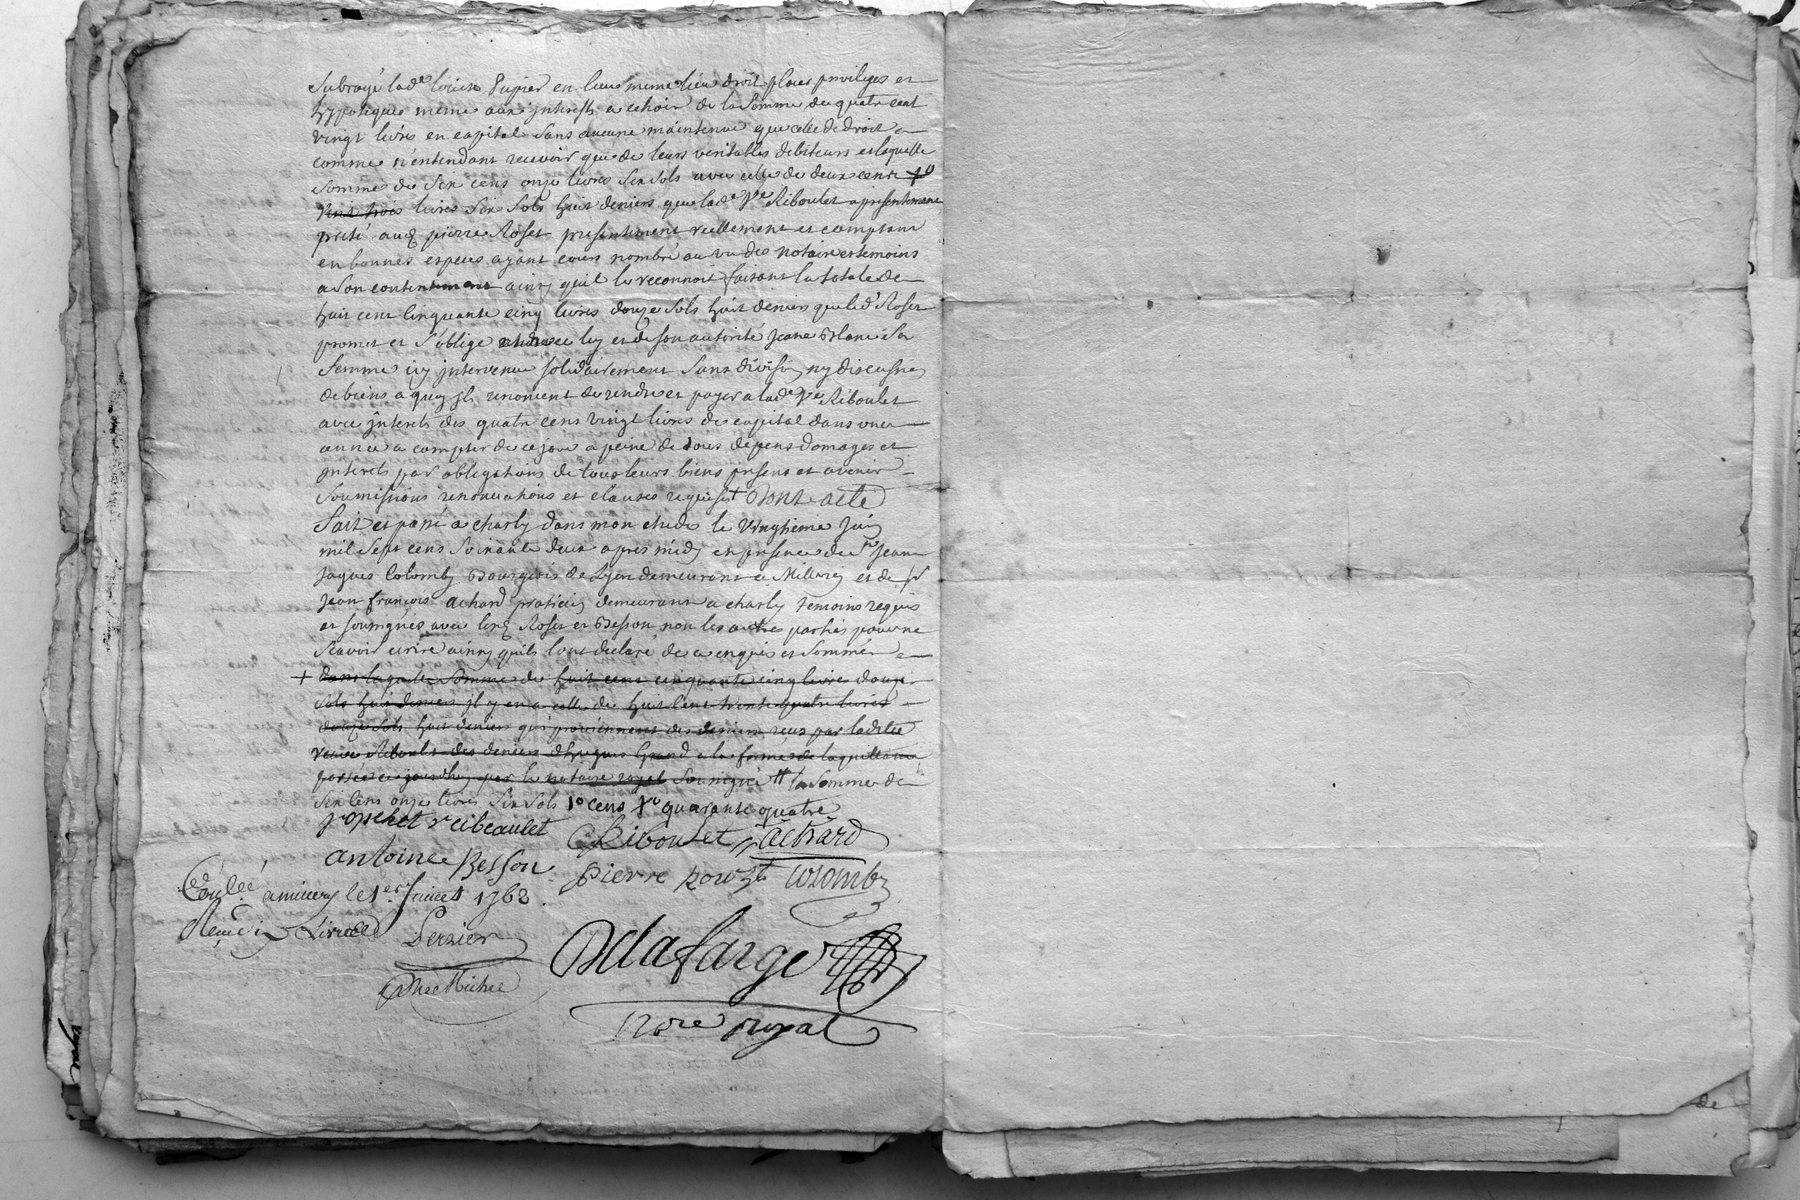 Subrogé lad.e Louise Pupier en leurs meme lieu droit place privileges et
hypoteques meme aux jnterests a echoir de la Somme de quatre cent
vingt livres en capital sans aucune maintenue que celle de droit
comme n'entendant recevoir que de leurs veritables debiteurs et laquelle
Somme de Six cens onze livres Six Sols avec celle de deux cents
vint trois livres Six Sols huit deniers que lad.e v.e Riboulet a presentement
preté aud pierre Roset presentement reellement et comptant
en bonnes especes ayant cours nombré au vu des notaire et temoins
a son contentement ainsy quil le reconnoit faisant la totale de
huit cent cinquante cinq livres douze Sols huit deniers que led.t Roset
promet et S'oblige et avec luy et de son autorité Jeane Blanc Sa
femme icy jntervenue solidairement Sans division ny discussion
de biens a quoy jls renoncent de rendre et payer a lad.e v.e Riboulet
avec jnterets des quatre cens vingt livres de capital dans une
année a compter de ce jour a peine de tous depens domages et
jnterets par obligations de tous leurs biens presens et avenir
Soumissions renonciations et clauses requises + Dont acte
fait et passé a charly dans mon etude le vingtieme Juin
mil Sept cens Soixante deux apres midy en presence de S.r Jean
Jaques Colomb Bourgeois de Lyon demeurant a Millery et de S.r
Jean françois achard praticien demeurant a charly temoins requis
et soussignés avec led Roset et Besson non les autres parties pour ne
Scavoir ecrire ainsy quils l'ont declaré de ce enquis et Sommés
+ dans laquelle Somme de huit cent cinquante cinq livres douze
Sols huit deniers jl y en a celle de huit cent trente quatre livres
douze Sols huit deniers qui proviennent des deniers reçus par ladite
veuve Riboulet des deniers d'hugues Grand a la forme de la quittance
passée ce jourdhuy par le notaire royal Soussigné # la Somme de
Six cens onze livres Six Sols 1º cens 1º quarante quatre
Riboulet achard
antoine Besson pierre Colomb
amillery le 1.er Juillet 1762.
Reçu
Delafarge
no.re royal
de